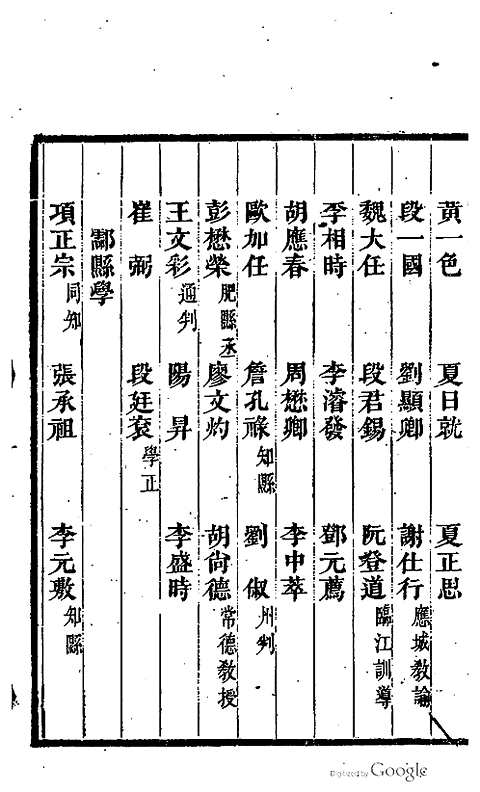 黃一色 夏日就 夏正思
段一國 劉顯卿 謝仕行 應城教諭
魏大任 段君錫 阮登道 臨江訓導
李相時 李濬發 鄧元薦
胡應春 周懋卿 李中萃
歐加任 詹孔祿 知縣 劉俶 州判
彭懋榮 肥縣丞 廖文灼 胡尙德 常德教授
王文彩 通判 陽昇 李盛時
崔弼 段廷袞 學正
酃縣學
項正宗 同知 張承祖 李元敷 知縣
Digitized by Google